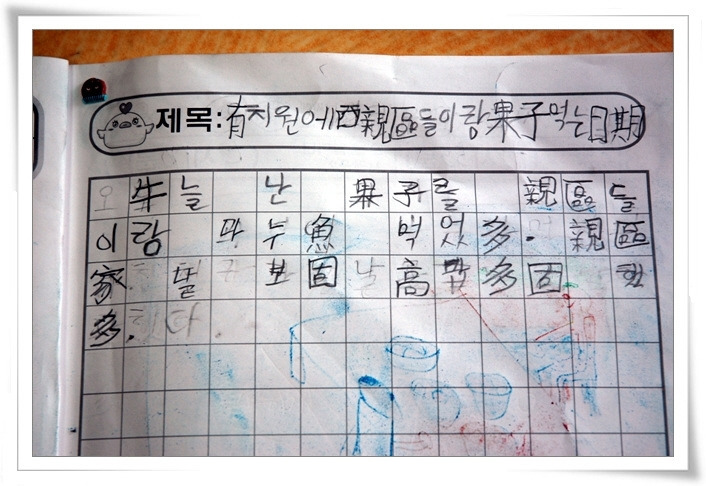 제목:有치원에酉親區들이랑果子먹는日期
오牛늘 난 果子를 親區들
이랑 나누魚 먹었多. 親區
家 날 보固 高맙多固 한
多.